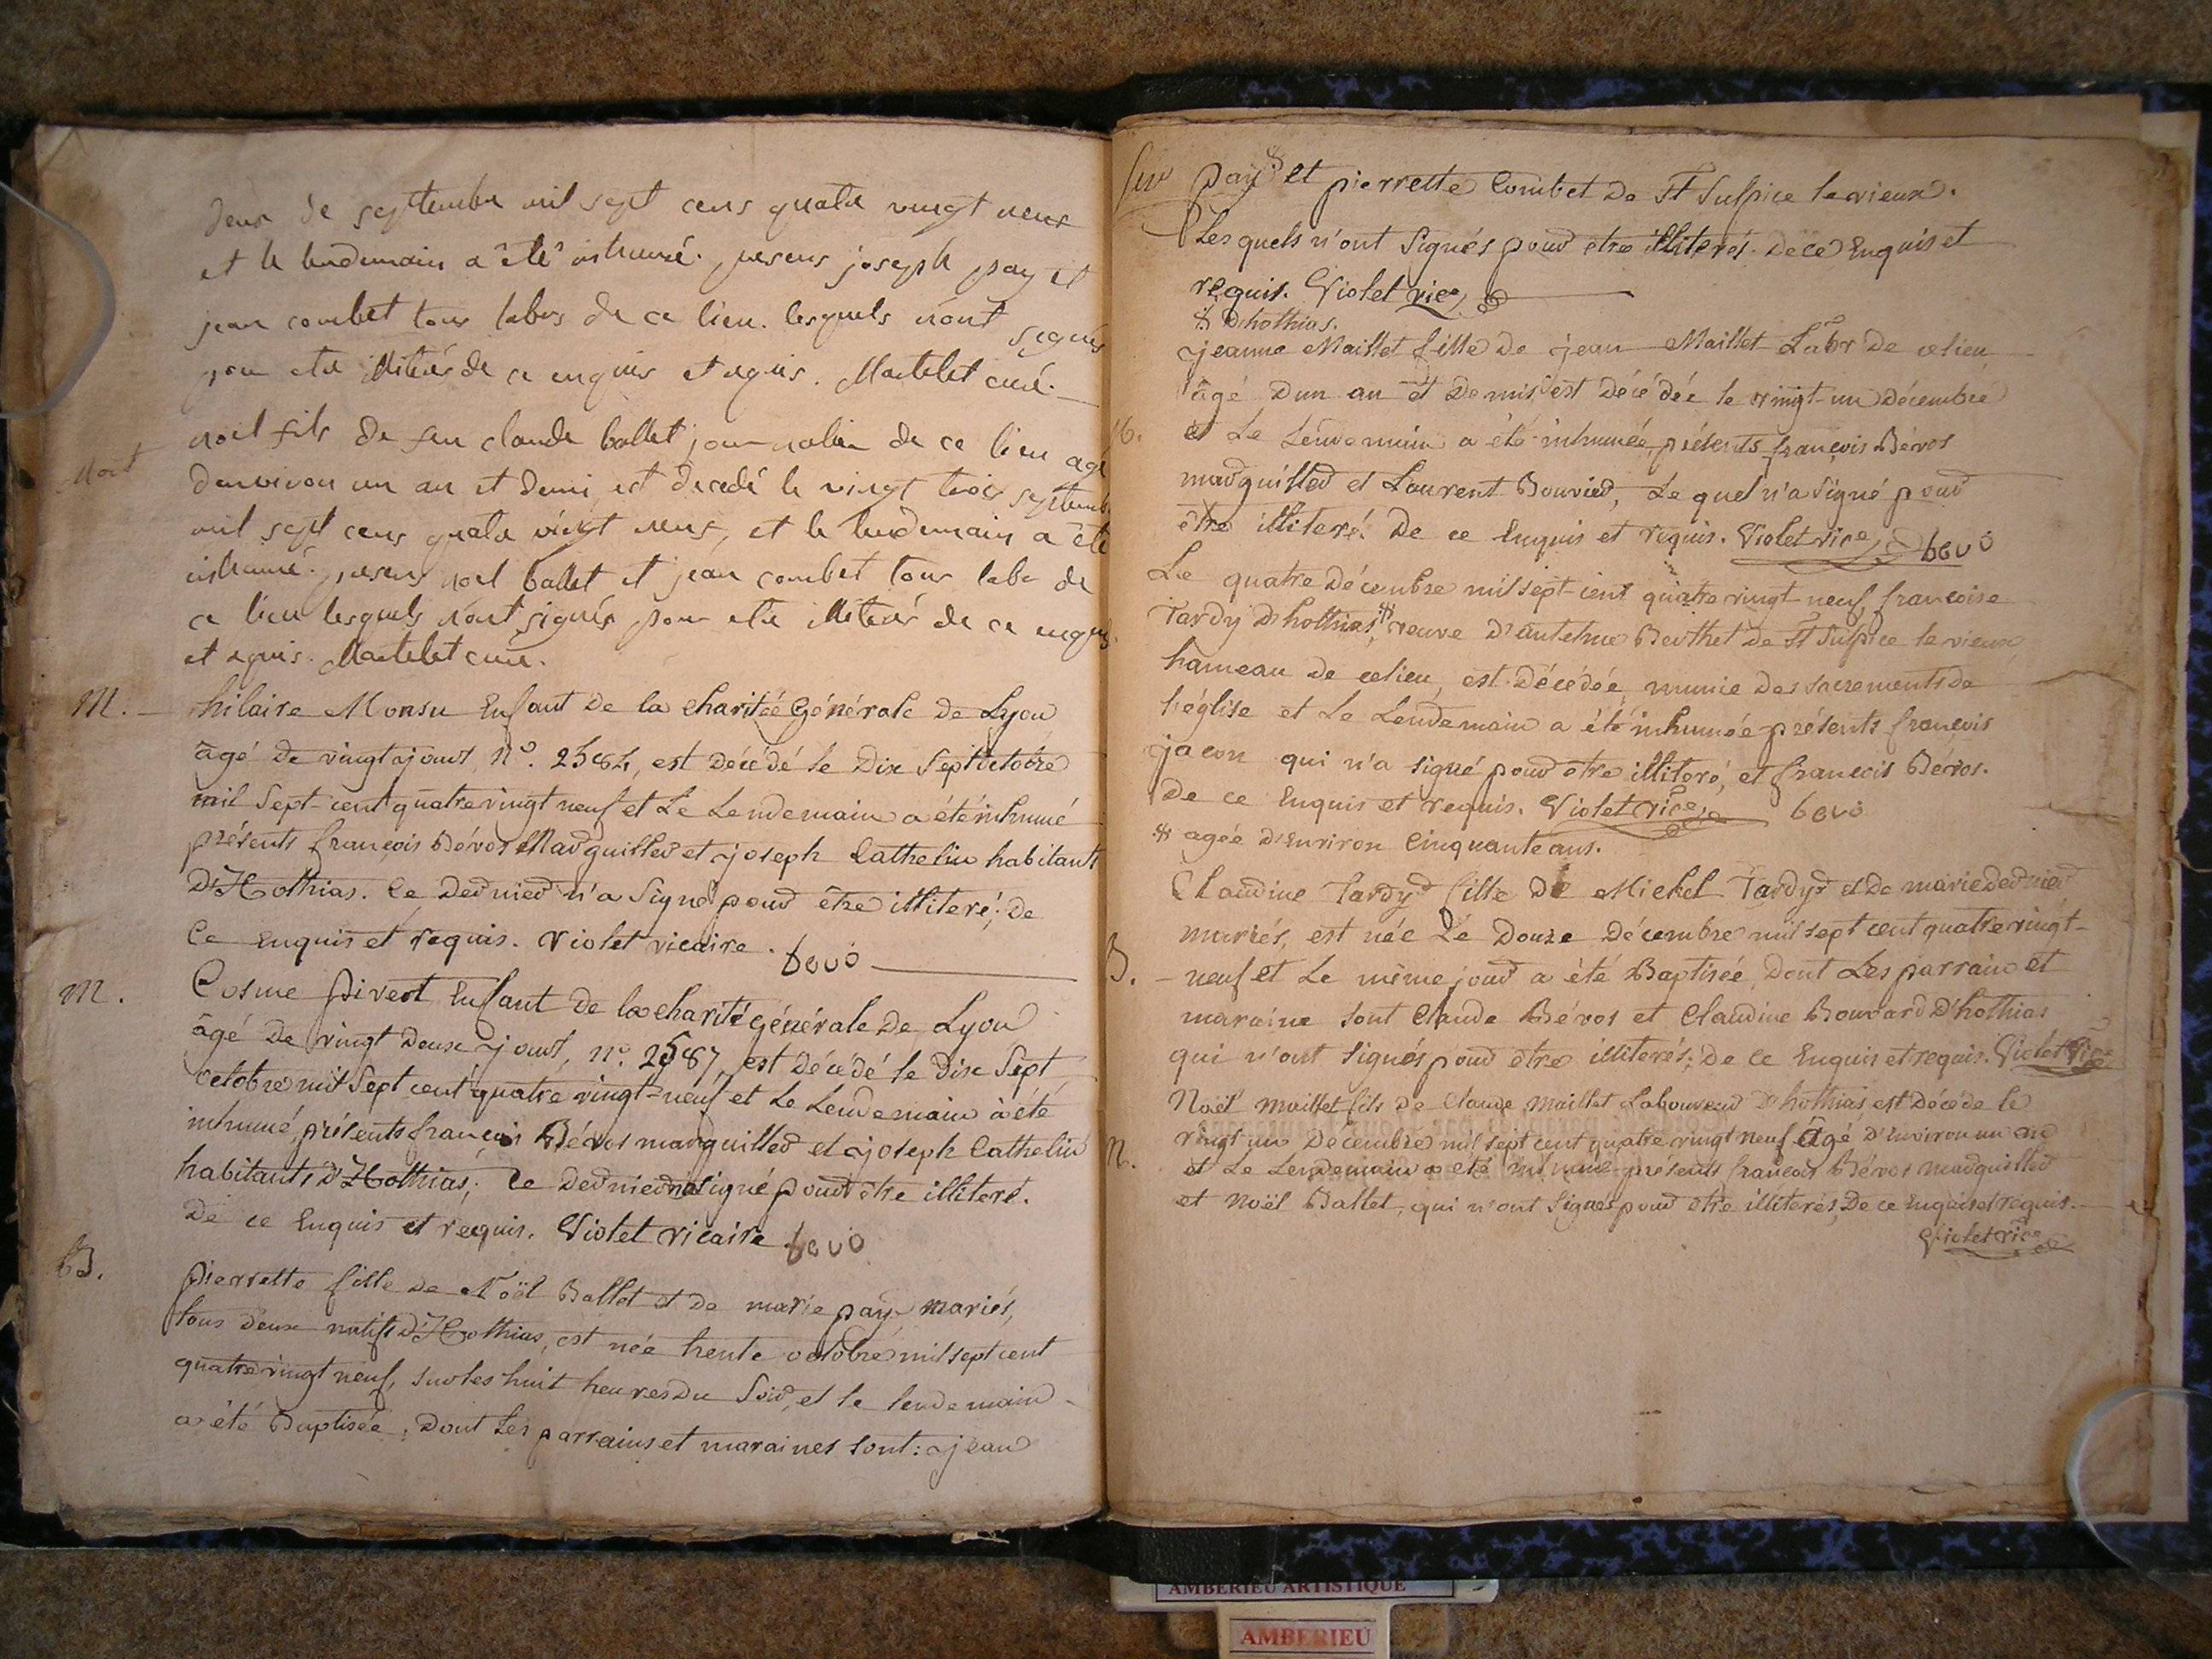 deux de septembre mil sept cens quatre vingt neuf
et le lendemain a été inhumé. presens joseph pay et
jean combet tous labrs de ce lieu. lesquels n'ont signés
pour etre illiterés de ce enquis et requis. Martelet curé.
noel fils de feu claude ballet journalier de ce lieu agé
Mort
denviron un an et demi est decedé le vingt trois septemb
mil sept cens quatre vingt neuf, et le lendemain a été
inhumé. presens noel ballet et jean combet tous labr de
ce lieu lesquels n'ont signés pour etre illiterés de ce enquis
et requis. Martelet curé.
M. hilaire Monsu Enfant De la Charitée Générale de Lyon
âgé De vingt jours, n°. 2584, est Décédé le Dix Sept Octobre
mil Sept-cent quatre vingt neuf et Le Lendemain a été inhumé
présents françois Bévos Marguiller et joseph Cathelin habitants
D'Hothias. Ce Dernier n'a Signé pour être illiteré; De
Ce Enquis et requis. Violet vicaire.
M. Cosme Pivert Enfant De la Charité générale De Lyon
âgé De vingt Deux jours, n°. 2587, est Décédé le Dix Sept
octobre mil Sept cent quatre vingt-neuf et Le Lendemain à été
inhumé, présents françois Bévos marguiller et joseph Cathelin
habitants D'Hothias; Ce Dernier n'a signé pour être illiteré.
De ce Enquis et requis. Violet vicaire
B. Pierrette fille De Noël Ballet et De marie pay, mariés,
tous Deux natifs D'Hothias, est née trente octobre mil sept cent
quatre vingt neuf, sur les huit heures Du Soir, et le lendemain
a été Baptisée, Dont Les parrains et maraines sont: jean
pay # et pierrette Combet De St Sulpice le vieux.
Lesquels n'ont Signés pour être illiterés. De ce Enquis et
requis. Violet vice
# D'hothias.
jeanne Maillet fille De jean Maillet Labr De ce lieu
âgé D'un an et Demis, est Décédée le vingt-un Décembre
et Le Lendemain a été inhumée, présents françois Bévos
marguiller et Laurent Bouvier, Le quel n'a signé pour
être illiteré. De ce Enquis et requis. Violet vice
Le quatre Décembre mil sept-cent quatre vingt neuf, françoise
Tardy D'hothias, # veuve D'antelme Berthet De St Sulpice le vieux
hameau De ce lieu, est Décédée, munie Des sacrements De
l'église et Le Lendemain a été inhumée présents françois
jacon qui n'a signé pour être illiteré, et françois Bévos.
De ce Enquis et requis. Violet vice
# agée D'Environ Cinquante ans.
Claudine Tardy fille De Michel Tardy et De marie Dernier
mariés, est née Le Douze Décembre mil sept cent quatre vingt-
B. neuf et Le même jour a été Baptisée, Dont Les parrain et
maraine sont Claude Bévos et Claudine Bouvard D'hothias
qui n'ont signés pour être illiterés; De Ce Enquis et requis. Violet Vice
Noël Maillet fils De Claude Maillet Laboureur D'hothias est Décédé le
vingt un Decembre mil sept cent quatre vingt neuf agé D'Environ un an
et Le Lendemain a eté inhumé présents françois Bévos marguiller
et Noël Ballet, qui n'ont Signés pour être illiterés, De ce Enquis et requis.
Violet vice
AMBERIEU ARTISTIQUE
AMBERIEU